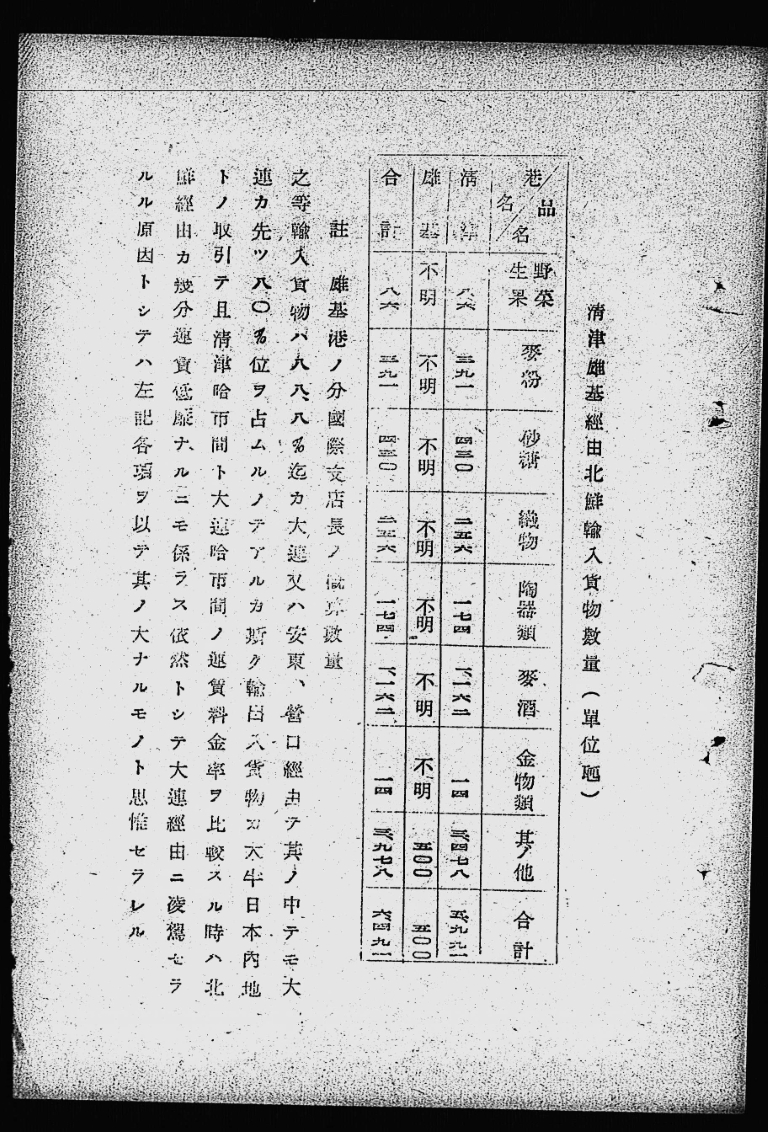 清津雄基經由北鮮輸入貨物數量（單位瓲）
港名／品名　野菜生果　麥粉　砂糖　織物　陶器類　麥酒　金物類　其ノ他　合計
清津　八六　三九一　四三〇　二五六　一七四　一、一六二　一四　三、四七八　五、九九一
雄基　不明　不明　不明　不明　不明　不明　不明　五〇〇　五〇〇
合計　八六　三九一　四三〇　二五六　一七四　一、一六二　一四　三、九七八　六四九一
註　雄基港ノ分國際支店長ノ概算數量
之等輸入貨物ハ八八、八％迄カ大連又ハ安東、營口經由テ其ノ中テモ大
連カ先ツ八〇％位ヲ占ムルノテアルカ斯ク輸出入貨物カ大半日本內地
トノ取引テ且清津哈市間ト大連哈市間ノ運賃料金率ヲ比較スル時ハ北
鮮經由カ幾分運賃低廉ナルニモ係ラス依然トシテ大連經由ニ凌駕セラ
ルル原因トシテハ左記各項ヲ以テ其ノ大ナルモノト思惟セラレル